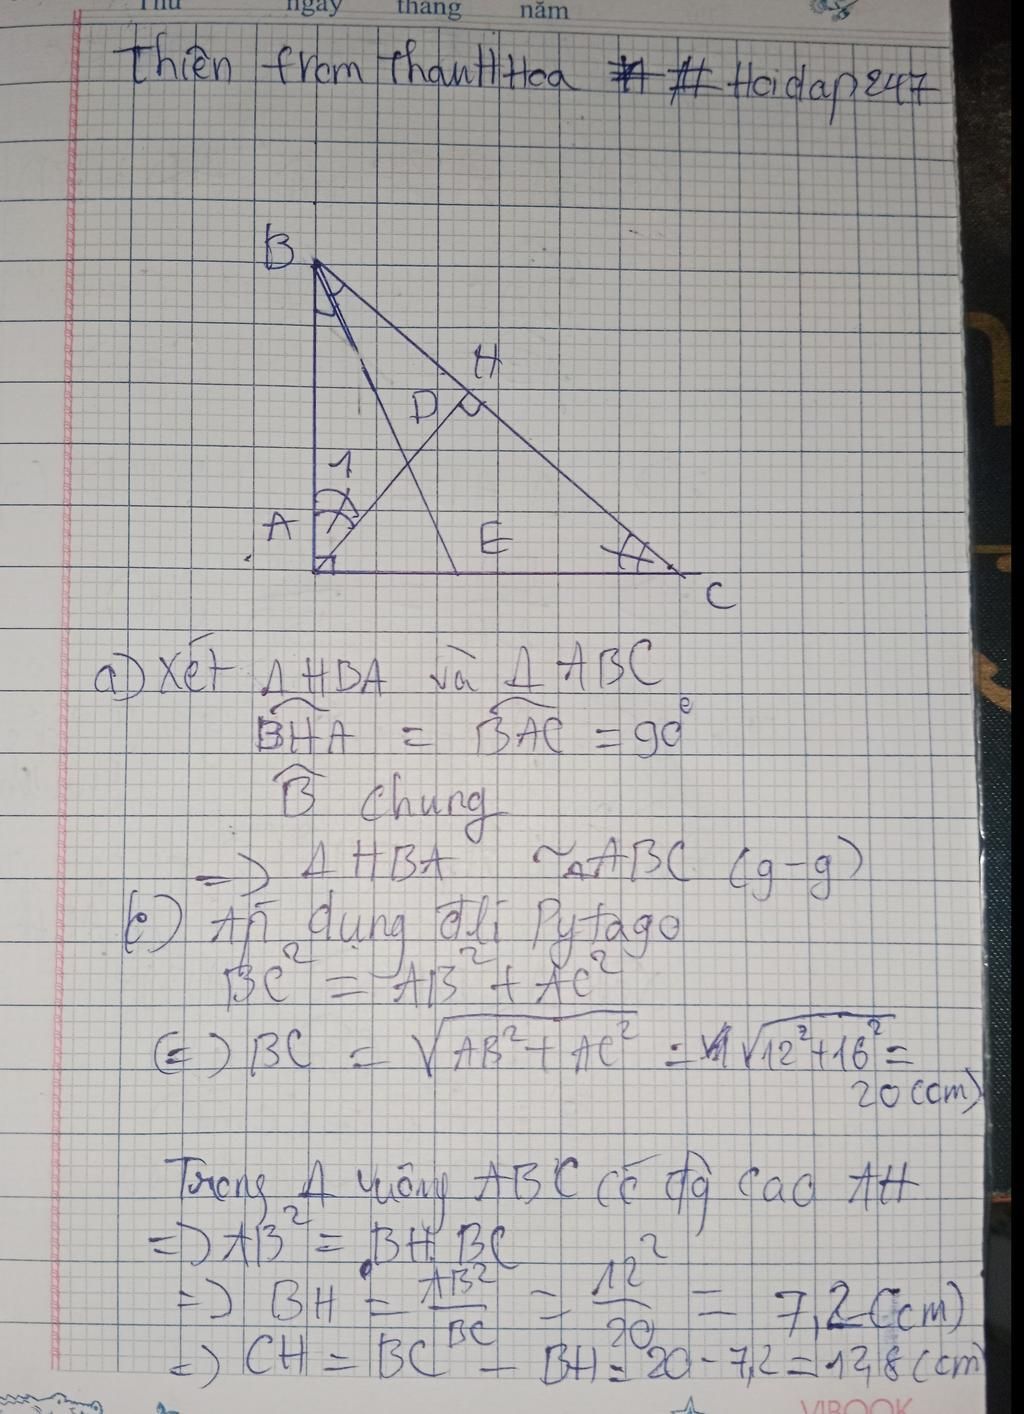 Thứ ngày tháng năm
Thiện from Thanh Hoa # Hoidap247
B
H
D
1
A
E
C
a) Xét Δ HBA và Δ ABC
BHA = BAC = 90°
B chung
=> Δ HBA ~ Δ ABC (g-g)
Áp dụng đlí Pytago
BC² = AB² + AC²
(=) BC = √AB² + AC² = √12² + 16² =
20 (cm)
Trong Δ vuông ABC có đg cao AH
=> AB² = BH.BC
=> BH = AB²/BC = 12²/20 = 7,2 (cm)
=> CH = BC - BH = 20 - 7,2 = 12,8 (cm)
VIBOOK